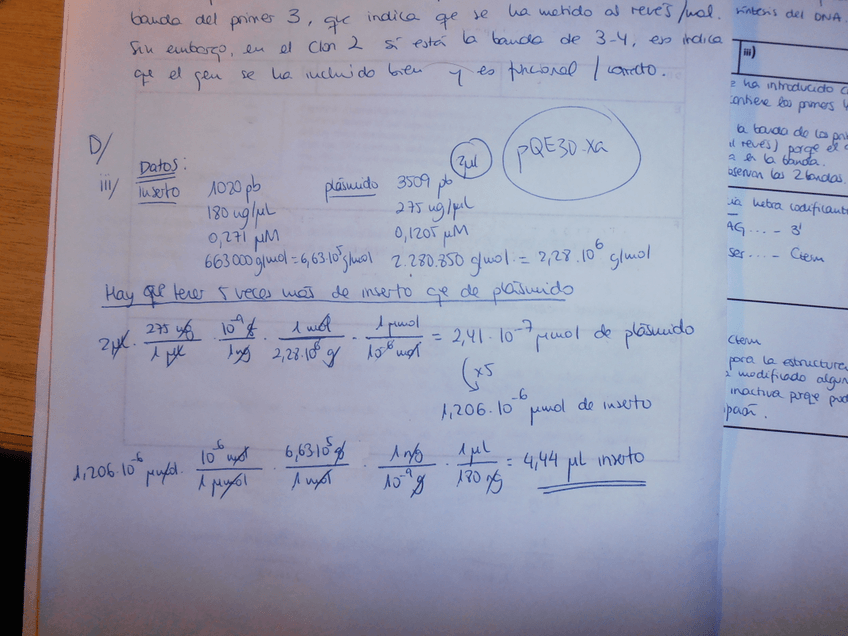 banda del primer 3, que indica qe se ha metido al revés/mal.
Sin embargo, en el Clon 2 sí está la banda de 3-4, eso indica
que el gen se ha incluido bien y es funcional / correcto.
D/
iii/
Datos:
2μl
pQE30-Xa
inserto 1020 pb plásmido 3509 pb
180 ng/μL 275 ng/μL
0,271 μM 0,1205 μM
663000 g/mol = 6,63·10⁵ g/mol 2.280.850 g/mol = 2,28·10⁶ g/mol
Hay que tener 5 veces más de inserto qe de plásmido
2 μL · 275 ng / 1 μL · 10⁻⁹ g / 1 ng · 1 mol / 2,28·10⁶ g · 1 μmol / 10⁻⁶ mol = 2,41·10⁻⁷ μmol de plásmido
x5
1,206·10⁻⁶ μmol de inserto
1,206·10⁻⁶ μmol · 10⁻⁶ mol / 1 μmol · 6,63·10⁵ g / 1 mol · 1 ng / 10⁻⁹ g · 1 μL / 180 ng = 4,44 μL inserto
síntesis del DNA.
iii)
ha introducido
contiene los primers
la banda de los
al revés) porqe el
en la banda.
observan las 2 bandas.
hebra codificante
AG... - 3'
ser... - Cterm
Cterm
para la estructura
modificado algun
inactiva porqe